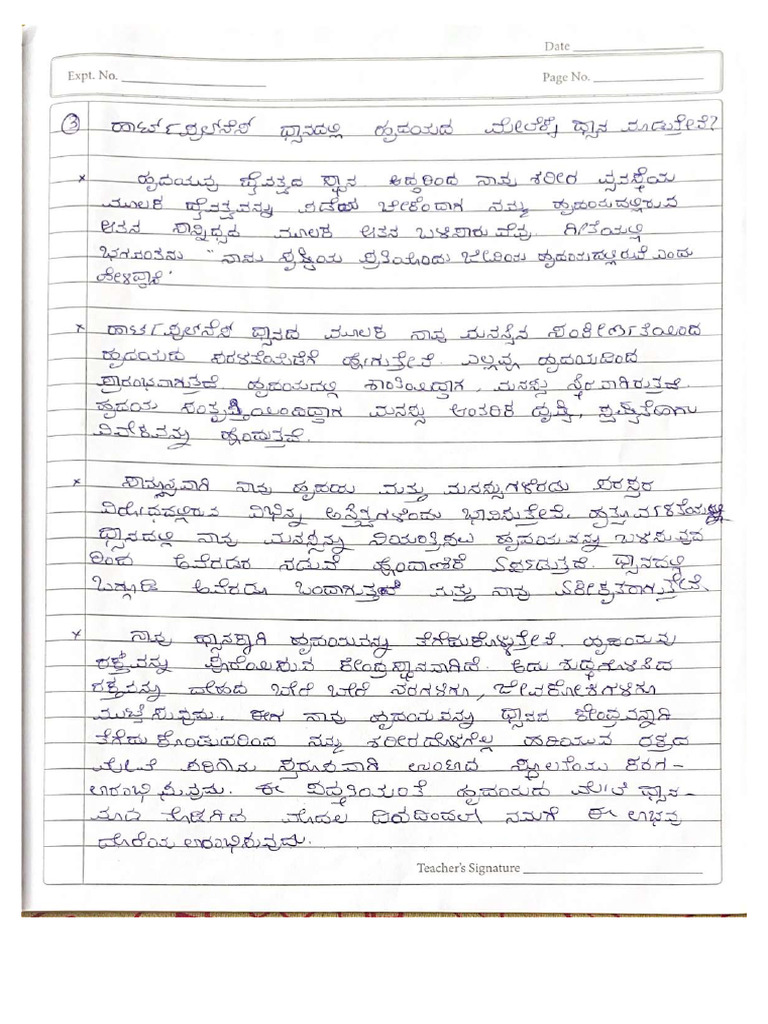 Date
Expt. No.
Page No.
3 ಹಾರ್ಟ್‌ಫುಲ್‌ನೆಸ್ ಧ್ಯಾನದಲ್ಲಿ ಹೃದಯದ ಮೇಲೆಕೆ ಧ್ಯಾನ ಮಾಡುತ್ತೇವೆ?
x ಹೃದಯವು ದೈವತ್ವದ ಸ್ಥಾನ ಆದ್ದರಿಂದ ನಾವು ಶರೀರ ವ್ಯವಸ್ಥೆಯ
ಮೂಲಕ ದೈವತ್ವವನ್ನು ಪಡೆಯ ಬೇಕೆಂದಾಗ ನಮ್ಮ ಹೃದಯದಲ್ಲಿರುವ
ಆತನ ಸಾನ್ನಿಧ್ಯದ ಮೂಲಕ ಆತನ ಬಳಿಸಾರುವೆವು. ಗೀತೆಯಲ್ಲಿ
ಭಗವಂತನು "ನಾನು ಸೃಷ್ಟಿಯ ಪ್ರತಿಯೊಂದು ಜೀವಿಯ ಹೃದಯದಲ್ಲಿರುವೆ ಎಂದು
ಹೇಳಿದ್ದಾನೆ"
x ಹಾರ್ಟ್‌ಫುಲ್‌ನೆಸ್ ಧ್ಯಾನದ ಮೂಲಕ ನಾವು ಮನಸ್ಸಿನ ಸಂಕೀರ್ಣತೆಯಿಂದ
ಹೃದಯದ ಸರಳತೆಯೆಡೆಗೆ ಹೋಗುತ್ತೇವೆ. ಎಲ್ಲವೂ ಹೃದಯದಿಂದ
ಪ್ರಾರಂಭವಾಗುತ್ತದೆ. ಹೃದಯದಲ್ಲಿ ಶಾಂತಿಯಿದ್ದಾಗ, ಮನಸ್ಸು ಸ್ಥಿರವಾಗಿರುತ್ತದೆ.
ಹೃದಯ ಸಂತೃಪ್ತಿಯಿಂದಿದ್ದಾಗ ಮನಸ್ಸು ಆಂತರಿಕ ದೃಷ್ಟಿ, ಸ್ಪಷ್ಟತೆಹಾಗು
ವಿವೇಕವನ್ನು ಹೊಂದುತ್ತದೆ.
x ಸಾಮಾನ್ಯವಾಗಿ ನಾವು ಹೃದಯ ಮತ್ತು ಮನಸ್ಸುಗಳೆರಡು ಪರಸ್ಪರ
ವಿರೋಧದಲ್ಲಿರುವ ವಿಭಿನ್ನ ಅಸ್ತಿತ್ವಗಳೆಂದು ಭಾವಿಸುತ್ತೇವೆ.
ಧ್ಯಾನದಲ್ಲಿ ನಾವು ಮನಸ್ಸನ್ನು ನಿಯಂತ್ರಿಸಲು ಹೃದಯವನ್ನು ಬಳಸುವುದ
ರಿಂದ ಅವೆರಡರ ನಡುವೆ ಹೊಂದಾಣಿಕೆ ಏರ್ಪಡುತ್ತದೆ. ಧ್ಯಾನದಲ್ಲಿ
ಒಗ್ಗೂಡಿ ಅವೆರಡೂ ಒಂದಾಗುತ್ತವೆ ಮತ್ತು ನಾವು ಏಕೀಕೃತರಾಗುತ್ತೇವೆ.
x ನಾವು ಧ್ಯಾನಕ್ಕಾಗಿ ಹೃದಯವನ್ನು ತೆಗೆದುಕೊಳ್ಳುತ್ತೇವೆ. ಹೃದಯವು
ರಕ್ತವನ್ನು ಪೂರೈಯಿಸುವ ಕೇಂದ್ರಸ್ಥಾನವಾಗಿದೆ. ಅದು ಶುದ್ಧಗೊಳಿಸಿದ
ರಕ್ತವನ್ನು ದೇಹದ ಬೇರೆ ಬೇರೆ ನರಗಳಿಗೂ, ಜೀವಕೋಶಗಳಿಗೂ
ಮುಟ್ಟಿಸುವುದು. ಈಗ ನಾವು ಹೃದಯವನ್ನು ಧ್ಯಾನದ ಕೇಂದ್ರವನ್ನಾಗಿ
ತೆಗೆದುಕೊಂಡುದರಿಂದ ನಮ್ಮ ಶರೀರದೊಳಗೆಲ್ಲ ಹರಿಯುವ ರಕ್ತದ
ಮೇಲೆ ಪರಿಣಾಮ ಸ್ವರೂಪವಾಗಿ ಉಂಟಾದ ಸ್ಥೂಲತೆಯು ಕರಗ-
ಲಾರಂಭಿಸುವುದು. ಈ ಪದ್ಧತಿಯಂತೆ ಹೃದಯದ ಮೇಲೆ ಧ್ಯಾನ-
ಮಾಡ ತೊಡಗಿದ ಮೊದಲ ದಿನದಿಂದಲೇ ನಮಗೆ ಈ ಲಾಭವು
ದೊರೆಯಲಾರಂಭಿಸುವುದು.
Teacher's Signature